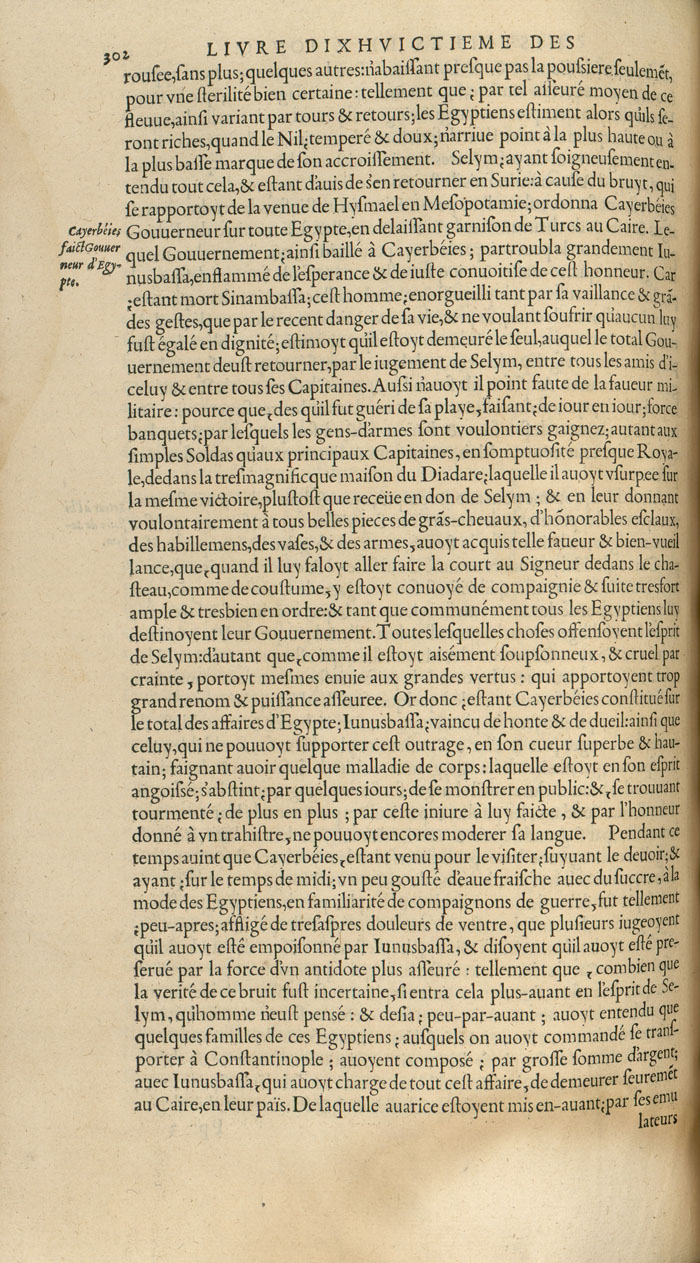 302
LIVRE DIXHVICTIEME DES
rouſee,ſans plus;quelques autres:n'abaiſſant preſque pas la pouſsiere ſeulemẽt,
pour vne ſterilité bien certaine:tellement que¿ par tel aſſeuré moyen de ce
fleuue,ainſi variant par tours & retours;les Egyptiens eſtiment alors qu'ils ſe-
ront riches,quand le Nil¿temperé & doux;n'arriue point à la plus haute ou à
la plus baſſe marque de ſon accroiſſement. Selym¿ayant ſoigneuſement en-
tendu tout cela,& eſtant d'auis de s'en retourner en Surie:à cauſe du bruyt, qui
ſe rapportoyt de la venue de Hyſmael en Meſopotamie;ordonna Cayerbéies
Cayerbéies
faict Gouuer
neur d'Egy-
pte.
Gouuerneur ſur toute Egypte,en delaiſſant garniſon de Turcs au Caire. Le-
quel Gouuernement;ainſi baillé à Cayerbéies; partroubla grandement Iu-
nusbaſſa,enflammé de l'eſperance & de iuſte conuoitiſe de ceſt honneur. Car
¿eſtant mort Sinambaſſa;ceſt homme¿enorgueilli tant par ſa vaillance & grã-
des geſtes,que par le recent danger de ſa vie,& ne voulant ſoufrir qu'aucun luy
fuſt égalé en dignité;eſtimoyt qu'il eſtoyt demeuré le ſeul,auquel le total Gou-
uernement deuſt retourner,par le iugement de Selym, entre tous les amis d'i-
celuy & entre tous ſes Capitaines.Auſsi n'auoyt il point faute de la faueur mi-
litaire: pource que¿des qu'il fut guéri de ſa playe,faiſant¿de iour en iour;force
banquets;par leſquels les gens-d'armes ſont voulontiers gaignez;autant aux
ſimples Soldas qu'aux principaux Capitaines,en ſomptuoſité preſque Roya-
le,dedans la treſmagnificque maiſon du Diadare¿laquelle il auoyt vſurpee ſur
la meſme victoire,pluſtoſt que receüe en don de Selym ; & en leur donnant
voulontairement à tous belles pieces de grãs-cheuaux, d'hónorables eſclaux,
des habillemens,des vaſes,& des armes,auoyt acquis telle faueur & bien-vueil
lance,que¿quand il luy faloyt aller faire la court au Signeur dedans le cha-
ſteau,comme de couſtume,y eſtoyt conuoyé de compaignie & ſuite tresfort
ample & tresbien en ordre:& tant que communément tous les Egyptiens luy
deſtinoyent leur Gouuernement.Toutes leſquelles choſes offenſoyent l'eſprit
de Selym:d'autant que¿comme il eſtoyt aisément ſoupſonneux, & cruel par
crainte, portoyt meſmes enuie aux grandes vertus: qui apportoyent trop
grand renom & puiſſance aſſeuree. Or donc ¿eſtant Cayerbéies conſtitué ſur
le total des affaires d'Egypte;Iunusbaſſa¿vaincu de honte & de dueil:ainſi que
celuy,qui ne pouuoyt ſupporter ceſt outrage, en ſon cueur ſuperbe & hau-
tain; faignant auoir quelque malladie de corps:laquelle eſtoyt en ſon eſprit
angoiſſé;s'abſtint¿par quelques iours;de ſe monſtrer en public:&¿ſe trouuant
tourmenté ¿de plus en plus ; par ceſte iniure à luy faicte, & par l'honneur
donné à vn trahiſtre,ne pouuoyt encores moderer ſa langue. Pendant ce
temps auint que Cayerbéies¿eſtant venu pour le viſiter¿ſuyuant le deuoir;&
ayant ¿ſur le temps de midi;vn peu gouſté d'eaue fraiſche auec du ſuccre,à la
mode des Egyptiens,en familiarité de compaignons de guerre,fut tellement
¿peu-apres;affligé de treſaſpres douleurs de ventre, que pluſieurs iugeoyent
qu'il auoyt eſté empoiſonné par Iunusbaſſa,& diſoyent qu'il auoyt eſté pre-
ſerué par la force d'vn antidote plus aſſeuré : tellement que ¿combien que
la verité de ce bruit fuſt incertaine,ſi entra cela plus-auant en l'eſprit de Se-
lym, qu'homme n'euſt penſé : & deſia¿ peu-par-auant ; auoyt entendu que
quelques familles de ces Egyptiens¿auſquels on auoyt commandé ſe tranſ-
porter à Conſtantinople ; auoyent compoſé ¿ par groſſe ſomme d'argent;
auec Iunusbaſſa¿qui auoyt charge de tout ceſt affaire,de demeurer ſeuremẽt
au Caire,en leur païs.De laquelle auarice eſtoyent mis en-auant¿par ſes emu
lateurs